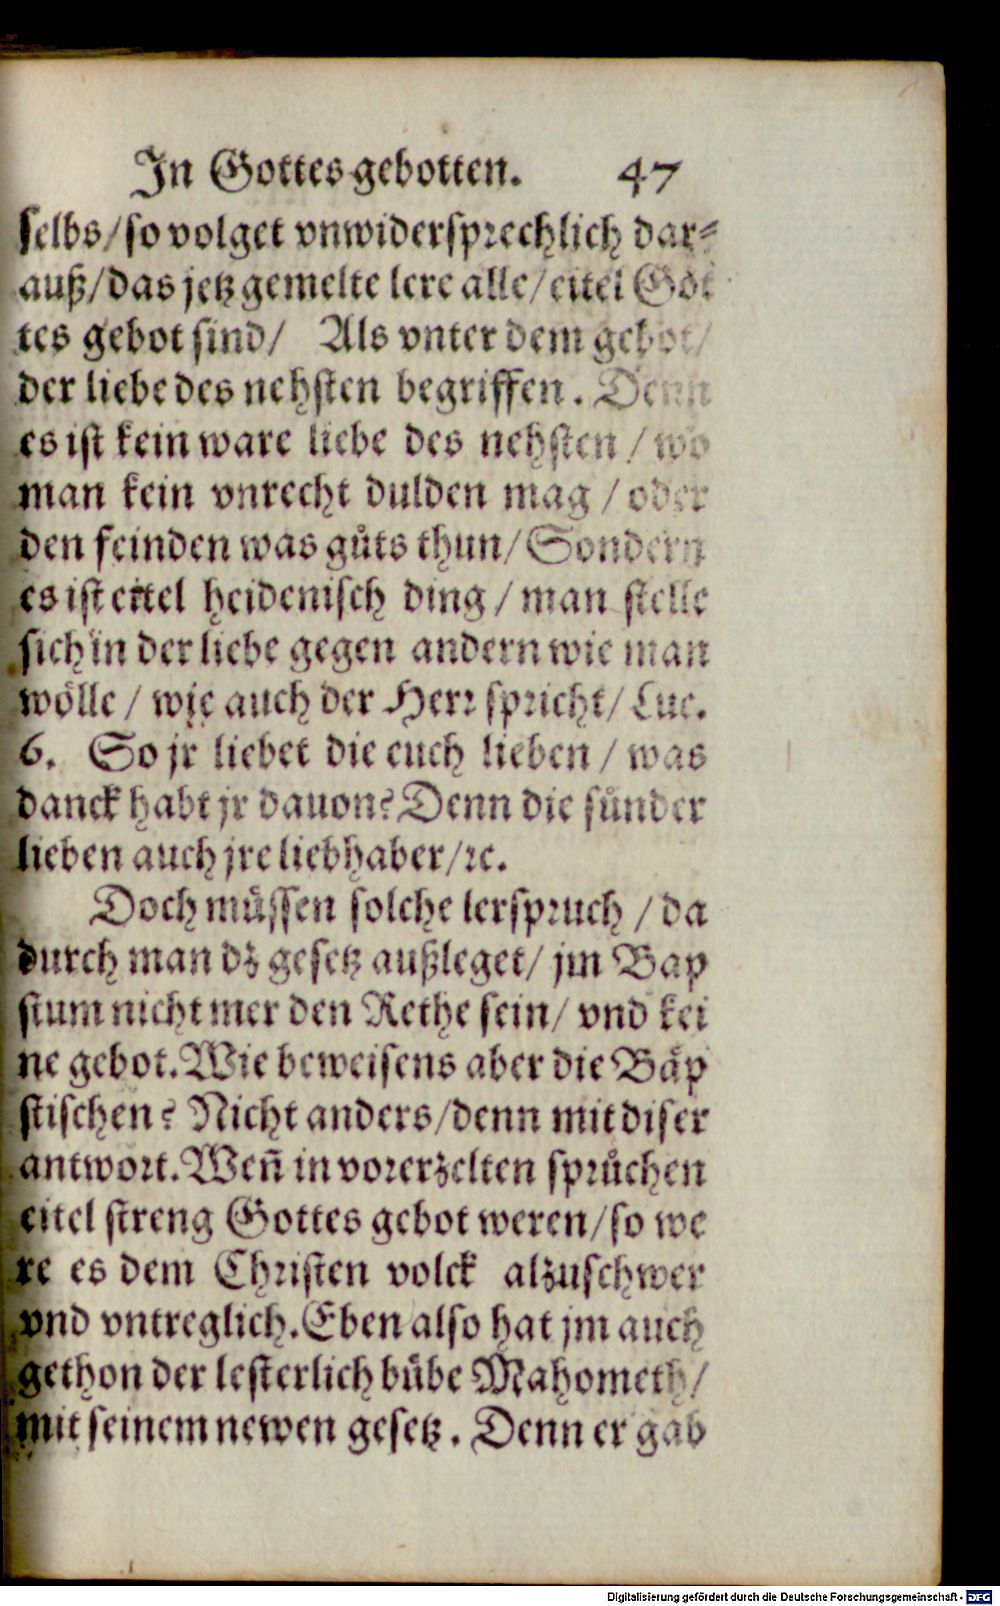 In Gottes gebotten. 47
selbs/so volget vnwidersprechlich dar⸗
auß/das jetz gemelte lere alle/eitel Got
tes gebot sind/ Als vnter dem gebot/
der liebe des nehsten begriffen. Denn
es ist kein ware liebe des nehsten / wo
man kein vnrecht dulden mag / oder
den feinden was gůts thun/Sondern
es ist eitel heidenisch ding / man stelle
sich in der liebe gegen andern wie man
wölle / wie auch der Herr spricht/ Luc.
6. So jr liebet die euch lieben / was
danck habt jr dauon? Denn die sünder
lieben auch jre liebhaber/ꝛc.
Doch müssen solche lerspruch / da
durch man dz gesetz außleget/ jm Bap
stum nicht mer den Rethe sein/ vnd kei
ne gebot. Wie beweisens aber die Bäp
stischen? Nicht anders/denn mit diser
antwort. Weñ in vorerzelten sprüchen
eitel streng Gottes gebot weren/so we
re es dem Christen volck alzuschwer
vnd vntreglich. Eben also hat jm auch
gethon der lesterlich bůbe Mahometh/
mit seinem newen gesetz. Denn er gab
Digitalisierung gefördert durch die Deutsche Forschungsgemeinschaft - DFG